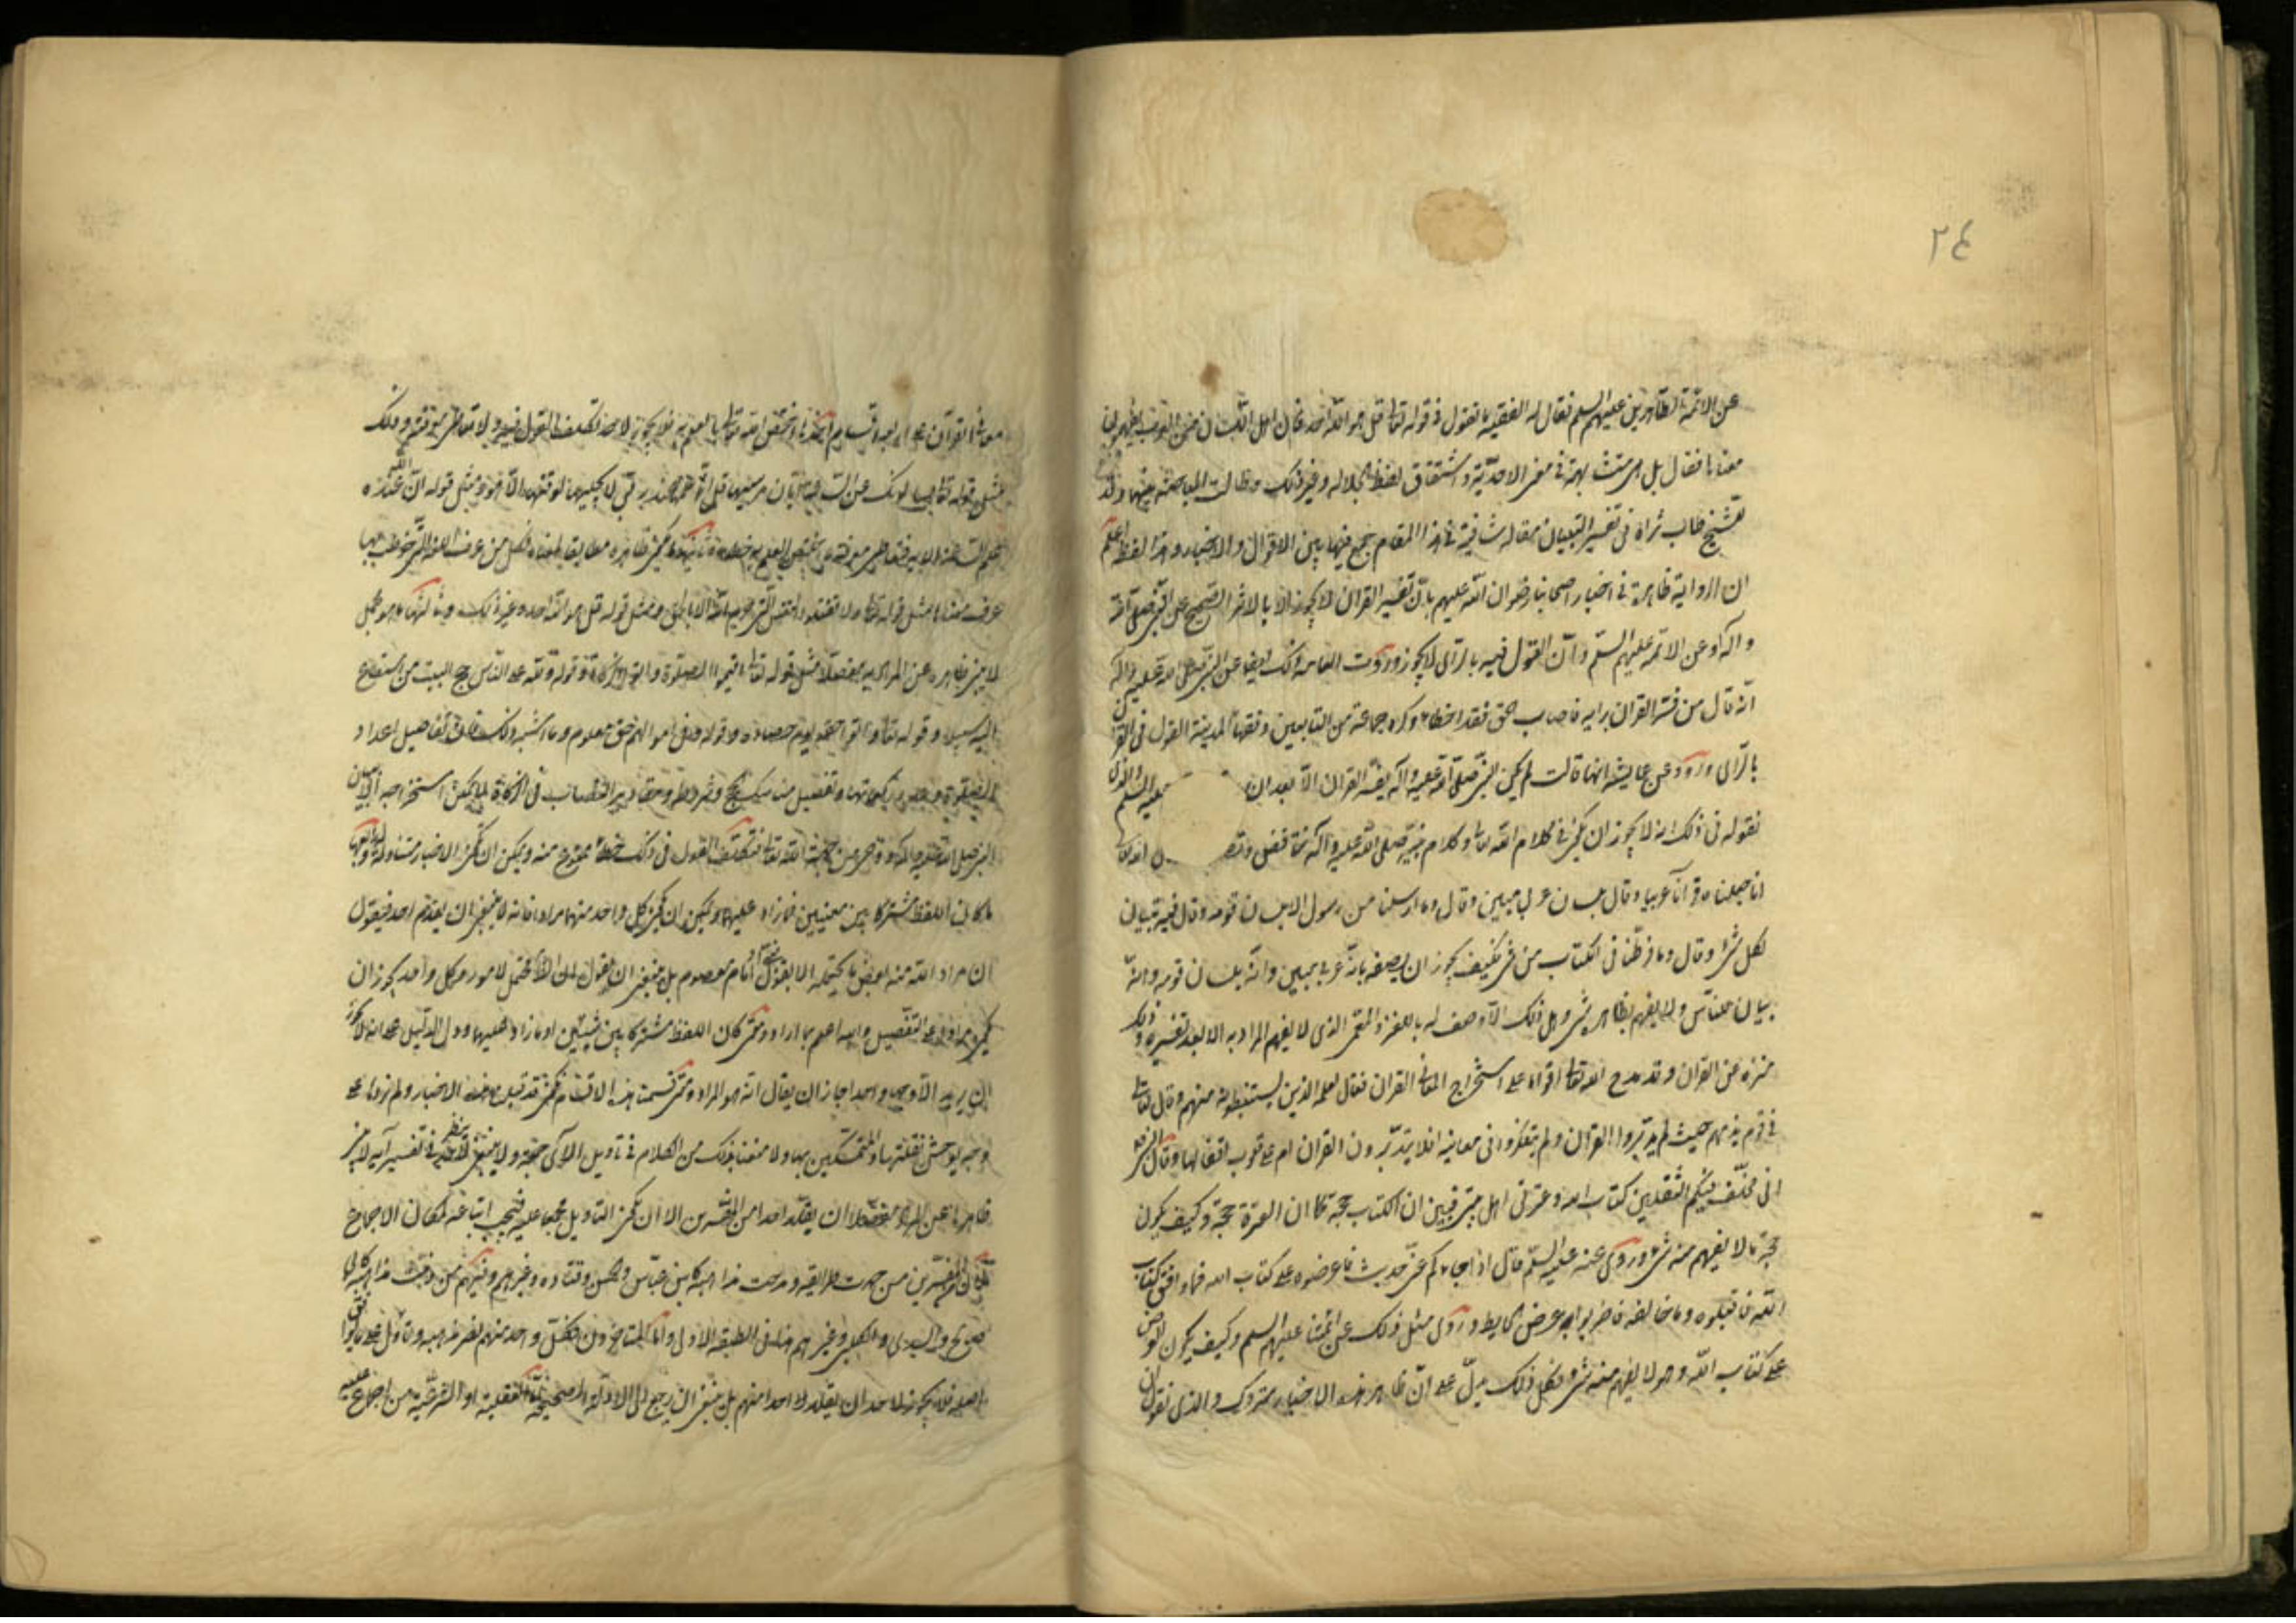 ٢٤
عن الائمة الطاهرين عليهم السلم فقال له الفقيه ما تقول في قوله تعالى قل هو الله احد
معناها فقال بل هي متشابهة في معنى الاحدية واشتقاق لفظ الجلالة وغير ذلك وطالت المباحثة بينهما وقد
للشيخ طاب ثراه في تفسير التبيان مقالة شافية في هذا المقام جمع فيها بين الاقوال والاخبار وهذا لفظه اعلم
ان الرواية ظاهرة في اخبار اصحابنا رضوان الله عليهم بان تفسير القران لا يجوز الا بالاثر الصحيح عن النبي صلى الله
واله او عن الائمة عليهم السلم وان القول فيه بالراى لا يجوز وروت العامه ذلك ايضا عن النبي صلى الله عليه واله
انه قال من فسر القران برايه فاصاب الحق فقد اخطاء وكره جماعة من التابعين وفقهاء المدينة القول في القران
بالراى وروى عن عايشة انها قالت لم يكن النبي صلى الله عليه واله يفسر القران الا بعد ان عليه السلم والذى
نقوله فى ذلك انه لا يجوز ان يكون فى كلام الله تعالى وكلام نبيه صلى الله عليه وآله تناقض وتضاد
انا جعلناه قرآنا عربيا وقال بلسان عربي مبين وقال وما ارسلنا من رسول الا بلسان قومه وقال فيه تبيان
لكل شئ وقال وما فرطنا فى الكتاب من شئ فكيف يجوز ان يصفه بانه عربى مبين وانه بلسان قومه وانه
بيان للناس ولا يفهم بظاهره شئ وهل ذلك الا وصف له باللغز والمعمى الذى لا يفهم المراد به الا بعد تفسيره وذلك
منزه عن القران وقد مدح الله تعالى اقواما على استخراج معانى القران فقال لعلمه الذين يستنبطونه منهم وقال تعالى
فى قوم يذمهم حيث لم يتدبروا القران ولم يتفكروا فى معانيه افلا يتدبرون القران ام على قلوب اقفالها وقال النبي
انى مخلف فيكم الثقلين كتاب الله وعترتى اهل بيتى فبين ان الكتاب حجة كما ان العترة حجة وكيف يكون
حجة ما لا يفهم منه شئ وروى عنه عليه السلم قال اذا جاءكم عنى حديث فاعرضوه على كتاب الله فما وافق كتاب
الله فاقبلوه وما خالفه فاضربوا به عرض الحايط وروى مثل ذلك عن ائمتنا عليهم السلم وكيف يكون العرض
على كتاب الله وهو لا يفهم منه شئ فكل ذلك يدل على ان ظاهر هذه الاخبار متروك والذى نقول ان
معانى القرآن على اربعة اقسام احدها ما اختص الله تعالى بالعلم به فلا يجوز لاحد تكلف القول فيه ولا تعاطى معرفته وذلك
مثل قوله تعالى يسالونك عن الساعة ايان مرسيها قل انما علمها عند ربى لا يجليها لوقتها الا هو ومثل قوله ان الله عنده
علم الساعة الاية فتعاطى معرفة ما اختص الله بالعلم به خطا وثانيها ما يكون ظاهره مطابقا لمعناه فكل من عرف اللغة التى خوطب بها
عرف معناها مثل قوله تعالى ولا تقتلوا النفس التى حرم الله الا بالحق ومثل قوله قل هو الله احد وغير ذلك وثالثها ما هو مجمل
لا ينبئ ظاهره عن المراد به مفصلا مثل قوله تعالى اقيموا الصلوة واتوا الزكوة وقوله ولله على الناس حج البيت من استطاع
اليه سبيلا وقوله تعالى واتوا حقه يوم حصاده وقوله وفى اموالهم حق معلوم وما اشبه ذلك فان تفاصيل اعداد
الصلوة وعدد ركعاتها وتفصيل مناسك الحج وشروطه ومقادير النصاب فى الزكاة لا يمكن استخراجه الا ببيان
النبي صلى الله عليه واله ووحى من جهة الله تعالى فتكلف القول فى ذلك خطا ممنوع منه ويمكن ان تكون الاخبار متناولة له ورابعها
ما كان اللفظ مشتركا بين معنيين فما زاد عليهما ويمكن ان يكون كل واحد منهما مرادا فانه لا ينبغى ان يقدم احد فيقول
ان مراد الله منه بعض ما يحتمله الا بقول نبى او امام معصوم بل ينبغى ان يقول ان الظاهر يحتمل لامور وكل واحد يجوز ان
يكون مرادا على التفصيل والله اعلم بما اراد ومتى كان اللفظ مشتركا بين شيئين او ما زاد عليهما ودل الدليل على انه لا يجوز
ان يريد الا وجها واحدا جاز ان يقال انه هو المراد ومتى قسمت هذه الاقسام نكون قد قبلنا هذه الاخبار ولم نردها على
وجه يوحش نقلتها والمتمسكين بها ولا منعنا بذلك من الكلام فى تاويل الآى جملة ولا ينبغى لاحد ينظر فى تفسير آية لا ينبئ
ظاهرها عن المراد مفصلا ان يقلد احدا من المفسرين الا ان يكون التاويل مجمعا عليه فيجب اتباعه لمكان الاجماع
لان من المفسرين من حمدت طرايقه ومدحت مذاهبه كابن عباس والحسن وقتاده وغيرهم ومنهم من ذمت مذاهبه كابى
صالح والسدى والكلبى وغيرهم هذا فى الطبقة الاولى واما المتاخرون فكل واحد منهم نصر مذهبه وتاول على ما يوافق
اصله فلا يجوز لاحد ان يقلد احدا منهم بل ينبغى ان يرجع الى الادلة الصحيحة اما العقلية او الشرعية من اجماع عليه